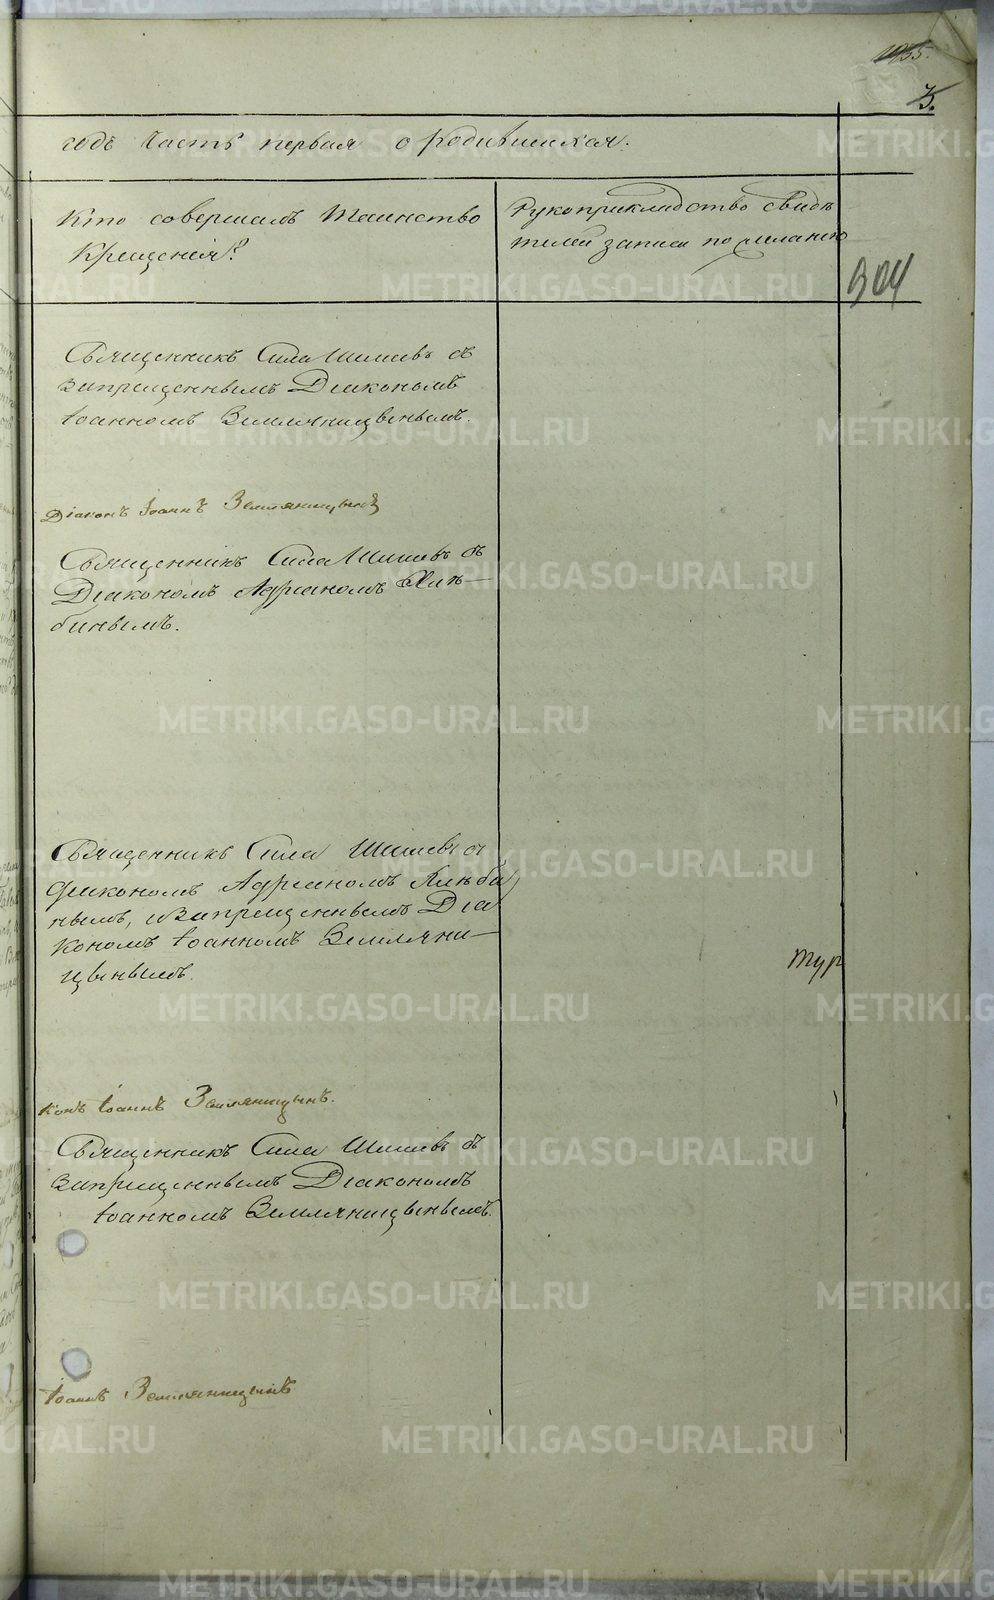 METRIKI.GASO-URAL.RU
3.
годъ Часть первая о родившихся.
Кто совершалъ таинство
Крещенія?
Рукоприкладство свидѣ
телей записи по желанію
304
Священникъ Сила Шишевъ съ
запрещеннымъ Діакономъ
Іоанномъ Земляницынымъ.
Діаконъ Іоаннъ Земляницынъ
Священникъ Сила Шишевъ съ
Діакономъ Адріаномъ Хлѣ-
бинымъ.
Священникъ Сила Шишевъ съ
діакономъ Адріаномъ Хлѣби
нымъ, и запрещеннымъ Діа
кономъ Іоанномъ Земляни-
цынымъ.
тур
конъ Іоаннъ Земляницынъ.
Священникъ Сила Шишевъ съ
запрещеннымъ Діакономъ
Іоанномъ Земляницынымъ.
Іоаннъ Земляницынъ